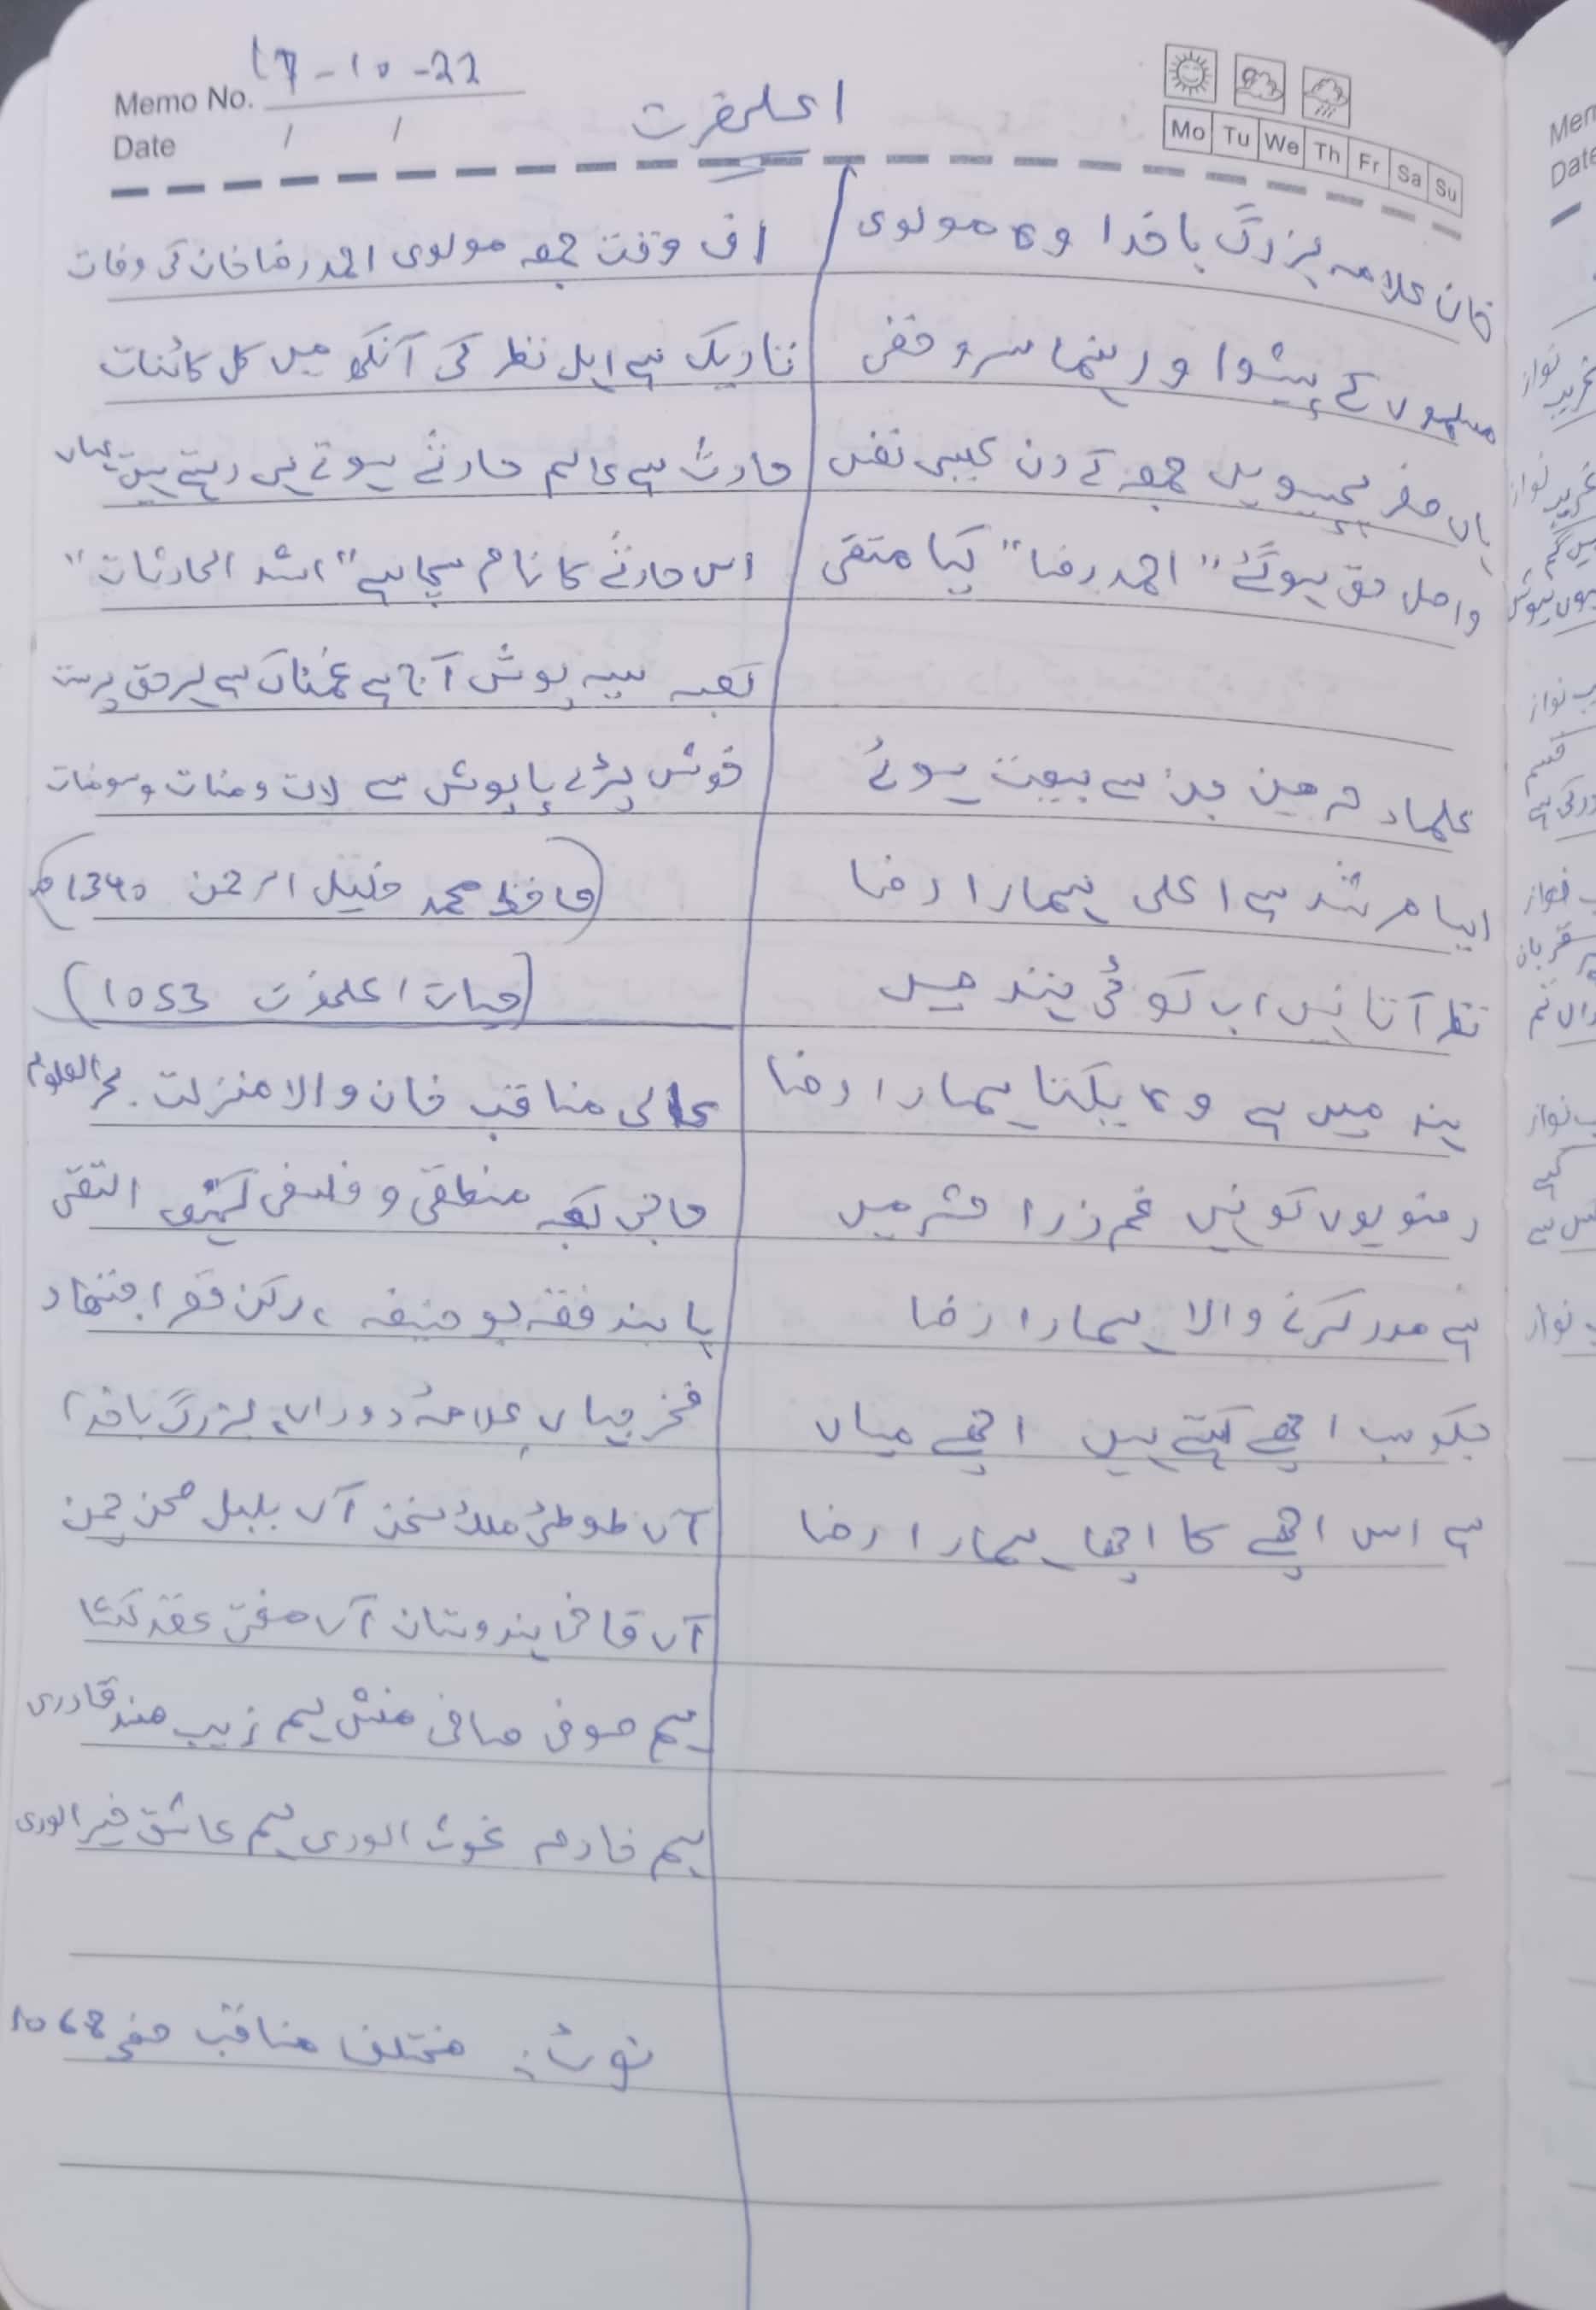 Memo No. 17-10-22
Date / /
Mo Tu We Th Fr Sa Su
اعلحضرت
خان علامہ بزرگ باخدا وہ مولوی
مسلموں کے پیشوا و رہنما سر و خفی
ہاں صفر پچیسویں جمعہ کے دن
واصل حق ہوگئے "احمد رضا" کیا متقی
علماء حرمین جن سے بیعت ہوئے
ایسا مرشد ہے اعلی ہمارا رضا
نظر آتا نہیں اب کوئی ہند میں
ہند میں ہے وہ یکتا ہمارا رضا
رضویوں کو نہیں غم ذرا حشر میں
ہے مدد کرنے والا ہمارا رضا
جکو سب اچھے کہتے ہیں اچھے میاں
ہے اس اچھے کا اچھا ہمارا رضا
اف وقت جمعہ مولوی احمد رضا خان کی وفات
تاریک ہے اہل نظر کی آنکھ میں کل کائنات
حادث ہے عالم حادثے ہوتے ہی رہتے ہیں یہاں
اس حادثے کا نام سچا ہے "اشد الحادثات"
کعبہ سیہ پوش آج ہے غمناک ہے ہر حق پرست
خوش ہڑے پاپوش سے لات و منات و سومنات
(حافظ محمد خلیل الرحمن 1340ھ)
(حیات اعلحضرت 1053)
عالی مناقب خان والا منزلت بحر العلوم
حاجی کعبہ منطقی و فلسفی التقی
پابند فقہ بو حنیفہ، رکن قصر اجتہاد
فخر جہاں علامۂ دوراں بزرگ باخدا
آں طوطئ ملک سخن آں بلبل صحن چمن
آں قاضی ہندوستان آں مفتی عقد کشا
ہم صوفی صافی منش ہم زیب مسند قادری
ہم خادم غوث الوری ہم عاشق خیر الوری
نوٹ: مختلف مناقب صفحہ 1068